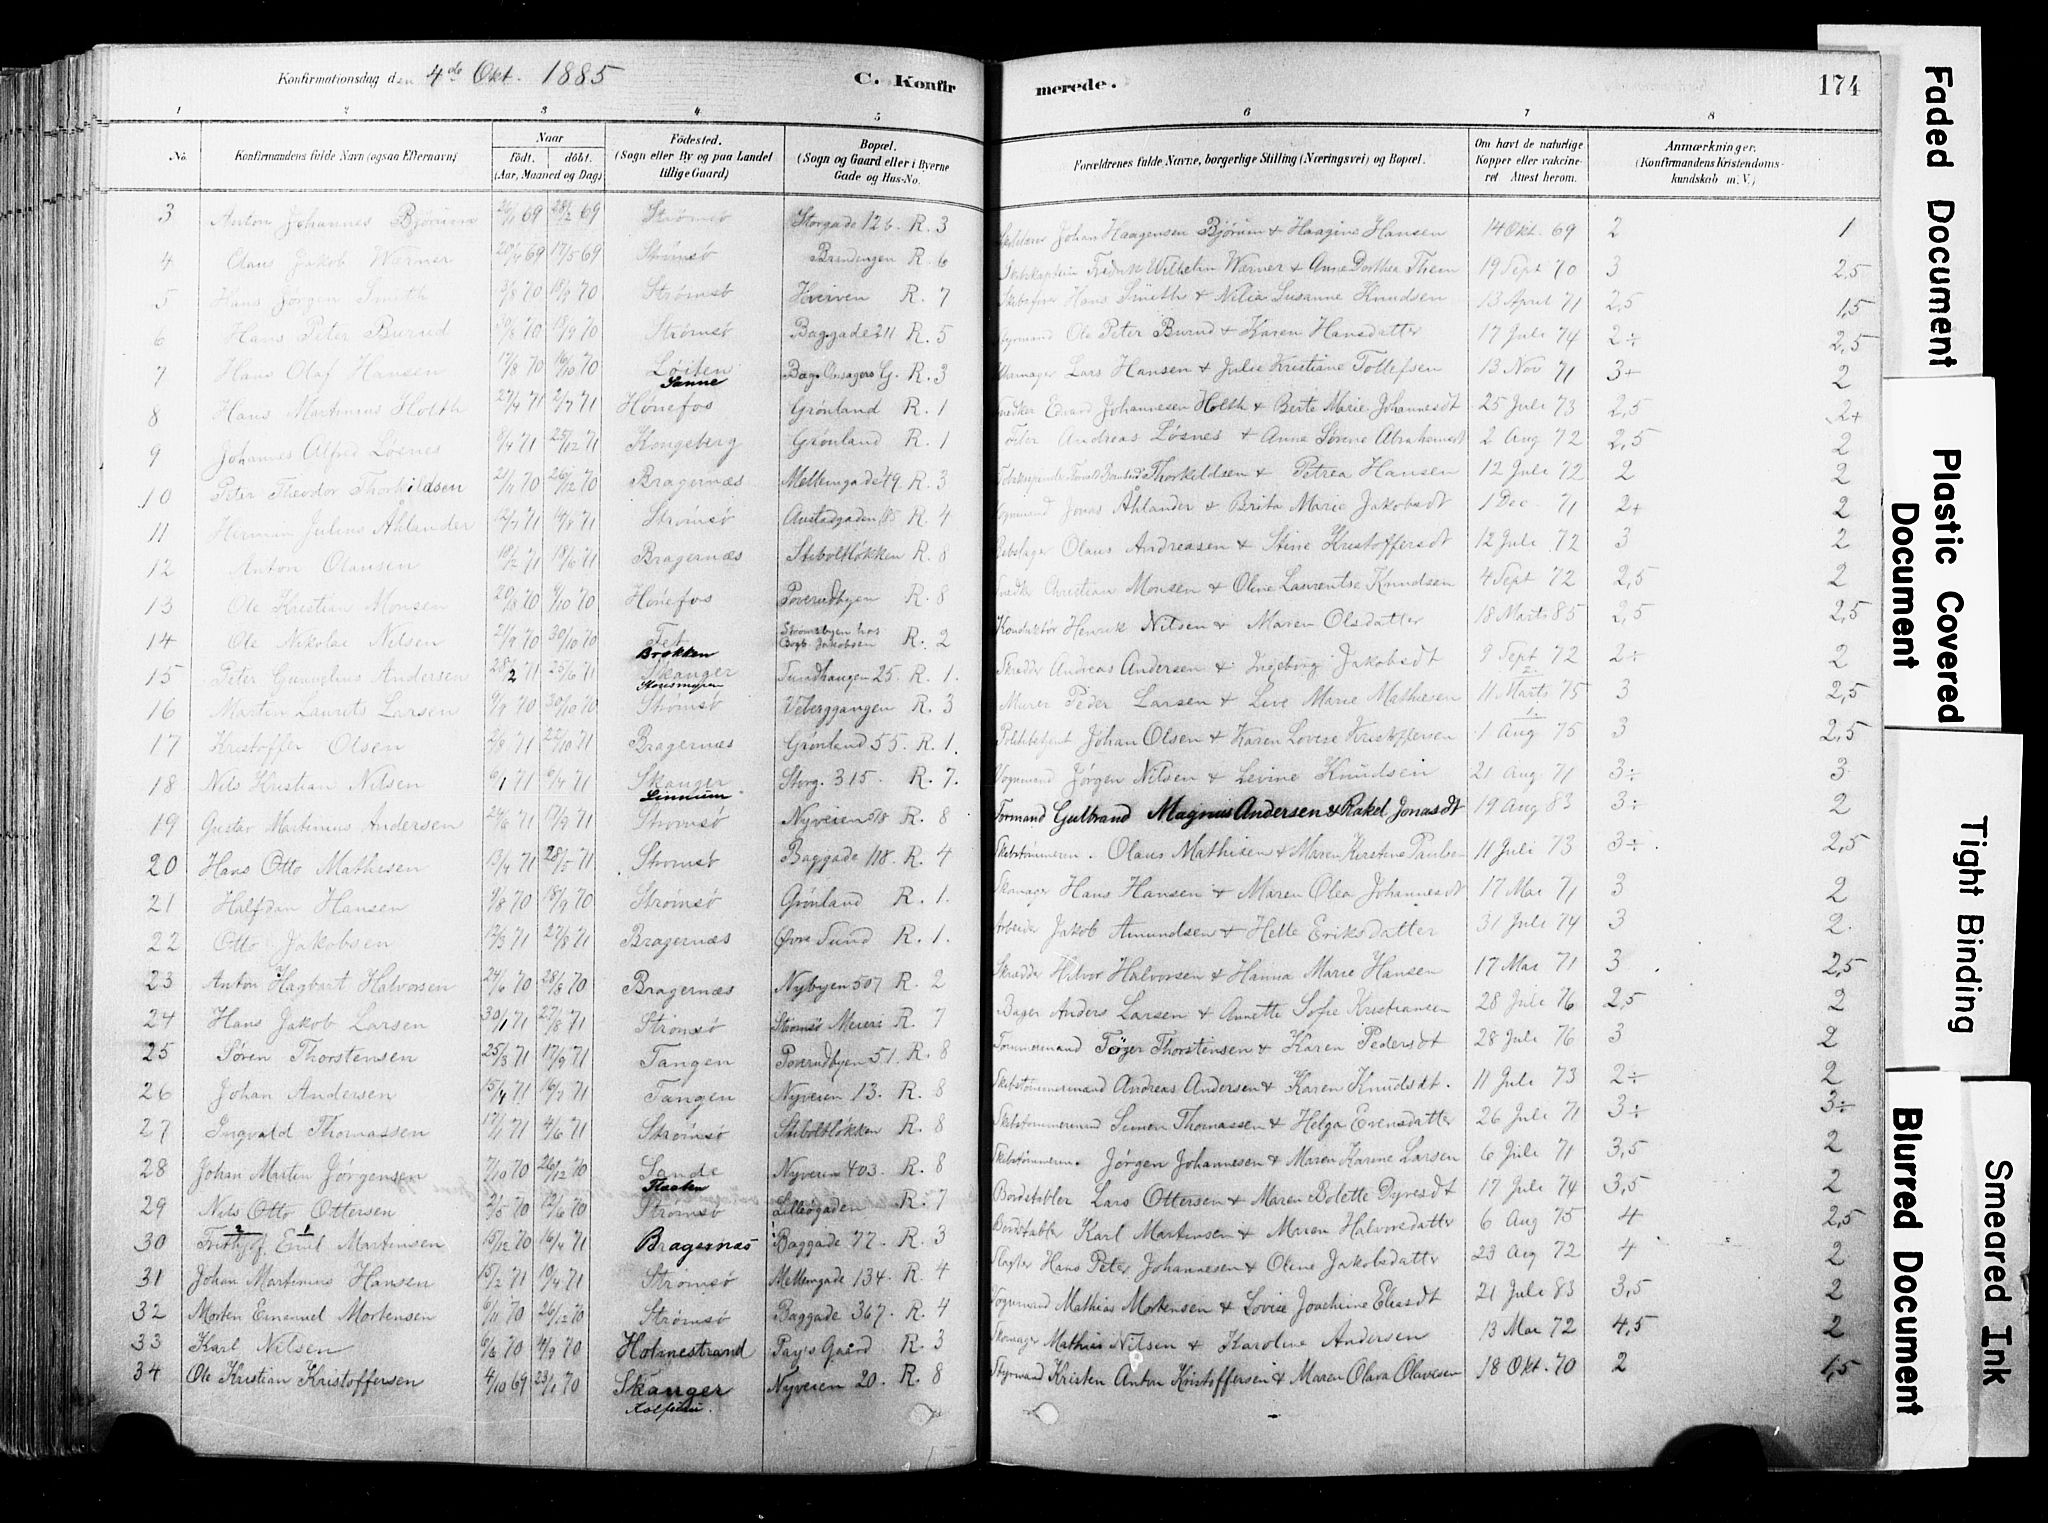 Konfirmationsdag den 4de Okt. 1885
C. Konfirmerede.
174
1 2 3 4 5 6 7 8
No. Konfirmandens fulde Navn (ogsaa Efternavn) Naar Födt. döbt. (Aar, Maaned og Dag) Födested. (Sogn eller By og paa Landet tillige Gaard) Bopæl. (Sogn og Gaard eller i Byerne Gade og Hus-No. Forældrenes fulde Navne, borgerlige Stilling (Næringsvei) og Bopæl. Om havt de naturlige Kopper eller vakcineret Attest herom. Anmærkninger. (Konfirmandens Kristendomskundskab m. V.)
3 Anton Johannes Bjørum 26/1 69 28/2 69 Strømsø Storgade 126. R. 3 Johan Haagensen Bjørum & Haagine Hansen 14 Okt. 69 2 1
4 Olaus Jakob Wærner 20/4 69 17/5 69 Strømsø Brandengen R. 6 Skibskaptein Fredrik Wilhelm Wærner & Anne Dorthea Them 19 Sept 70 3 2,5
5 Hans Jørgen Smith 3/8 70 18/9 70 Strømsø Kveiven R. 7 Skibsfører Hans Smith & Nilia Susanne Knudsen 13 April 71 2,5 1,5
6 Hans Peter Burud 30/8 70 18/9 70 Strømsø Baggade 211 R. 5 Ole Peter Burud & Karen Hansdatter 17 Juli 74 2÷ 2,5
7 Hans Olaf Hansen 17/8 70 16/10 70 Løiten Sanne R. 3 Lars Hansen & Julie Kristiane Tollefsen 13 Nov 71 3+ 2
8 Hans Martinius Holth 27/4 71 2/7 71 Hønefos Grønland R. 1 Snedker Edvard Johannesen Holth & Berte Marie Johannesdt 25 Juli 73 2,5 2+
9 Johannes Alfred Løsnes 8/4 71 25/12 71 Kongsberg Grønland R. 1 Andreas Løsnes & Anne Sønne Abrahamsdt 2 Aug 72 2,5 2
10 Peter Theodor Thorkildsen 21/11 70 26/12 70 Bragernæs Mellemgade 49. R. 3 Thorkildsen & Petrea Hansen 12 Juli 72 2 2
11 Herman Julius Åhlander 12/7 71 14/8 71 Strømsø Austadgaden R. 4 Vognmand Jonas Åhlander & Brita Marie Jakobsdt 1 Dec. 71 2+ 2
12 Anton Olausen 18/2 71 18/6 71 Bragernæs Stiboltløkken R. 8 Rebslager Olaus Andreasen & Stine Kristoffersdt 12 Juli 72 3 2
13 Ole Kristian Monsen 20/8 70 9/10 70 Hønefos Poverudbyen R. 8 Snedker Christian Monsen & Oline Laurentse Knudsen 4 Sept 72 2,5 2
14 Ole Nikolai Nilsen 21/9 70 30/10 70 Fet Brøkken Strømsbyen hos Jakobsen R. 2 Konduktør Henrik Nilsen & Maren Olsdatter 18 Marts 85 2,5 2,5
15 Peter Gunvelius Andersen 28/2 71 25/6 71 Skanger Tusadhaugen 25. R. 1. Skrædder Andreas Andersen & Ingeborg Jakobsdt 9 Sept 72 2÷ 2
16 Marten Laurits Larsen 9/9 70 30/10 70 Strømsø Veberggangen R. 3 Murer Peder Larsen & Live Marie Mathisen 11 Marts 75 3 2,5
17 Kristoffer Olsen 2/8 71 22/10 71 Bragernæs Grønland 55. R. 1. Politibetjent Johan Olsen & Karen Lovise Kristoffersen 1 Aug 75 3 2,5
18 Nils Kristian Nilsen 6/1 71 9/4 71 Skanger Linnum Storg. 315. R. 7. Vognmand Jørgen Nilsen & Levine Knudsen 21 Aug 71 3÷ 3
19 Gustav Martinius Andersen 24/6 71 17/9 71 Strømsø Nyveien R. 8 Formand Gulbrand Magnus Andersen & Rakel Jonasdt 19 Aug 83 3÷ 2
20 Hans Otto Mathisen 13/4 71 28/5 71 Strømsø Baggade 118. R. 4 Skibstømmerm. Olaus Mathisen & Maren Kirstine Paulsen 11 Juli 73 3÷. 2,5
21 Halfdan Hansen 9/8 70 18/9 70 Strømsø Grønland R. 1. Skomager Hans Hansen & Maren Olea Johannesdt 17 Mai 71 3 2
22 Otto Jakobsen 12/3 71 27/8 71 Bragernæs Øvre Sund R. 1. Arbeider Jakob Amundsen & Helle Eriksdatter 31 Juli 74 3 2.
23 Anton Hagbart Halvorsen 24/6 70 28/8 70 Bragernæs Nybyen 507 R. 2 Skrædder Halvor Halvorsen & Hanna Marie Hansen 17 Mai 71 3 2,5
24 Hans Jakob Larsen 30/1 71 27/8 71 Strømsø Strømsø Meieri R. 7 Bager Anders Larsen & Annette Sofie Kristiansen 28 Juli 76 2,5 2
25 Søren Thorstensen 25/3 71 17/9 71 Tangen Poverudbyen 51. R. 8 Tømmermand Tøger Thorstensen & Karen Pedersdt 28 Juli 76 3 2
26 Johan Andersen 15/4 71 16/7 71 Tangen Nyveien 13. R. 8 Skibstømmermand Andreas Andersen & Karen Knudsdt. 11 Juli 73 2÷ 2
27 Ingvald Thomassen 17/1 71 4/6 71 Strømsø Stiboltløkken R. 8 Skibstømmermand Simon Thomassen & Helga Evensdatter 26 Juli 71 3÷ 3÷
28 Johan Marten Jørgensen 7/10 70 26/12 70 Sande Flaaten Nyveien 403. R. 8 Skibstømmerm. Jørgen Johannesen & Maren Karine Larsen 6 Juli 71 3,5 2
29 Nils Otto Ottersen 2/5 70 12/6 70 Strømsø Lilleøgaden R. 7 Bordstabler Lars Ottersen & Maren Bolette Dyresdt 17 Juli 74 3,5 2
30 Frithjof Emil Martinsen 15/12 70 16/4 71 Bragernæs Baggade 77. R. 3 Bordstabler Karl Martinsen & Maren Halvorsdatter 6 Aug 75 4 2,5
31 Johan Martinius Hansen 15/2 71 19/4 71 Strømsø Mellemgade 134. R. 4 Slagter Hans Peter Johannesen & Oline Jakobsdatter 23 Aug 72 4 2
32 Morten Emanuel Mortensen 6/11 70 26/12 70 Strømsø Baggade 367. R. 4 Vognmand Mathias Mortensen & Lovise Joachime Eliasdt 21 Juli 83 3,5 2
33 Karl Nilsen 6/6 70 4/9 70 Holmestrand Pay's Gaard R. 3 Skomager Mathias Nilsen & Karoline Andersen 13 Mai 72 4,5 2
34 Ole Kristian Kristoffersen 4/10 69 23/1 70 Skanger Nyveien 20. R. 8 Styrmand Kristen Anton Kristoffersen & Maren Olava Olavesen 18 Okt. 70 2 1,5
Faded Document
Plastic Covered Document
Tight Binding
Blurred Document
Smeared Ink